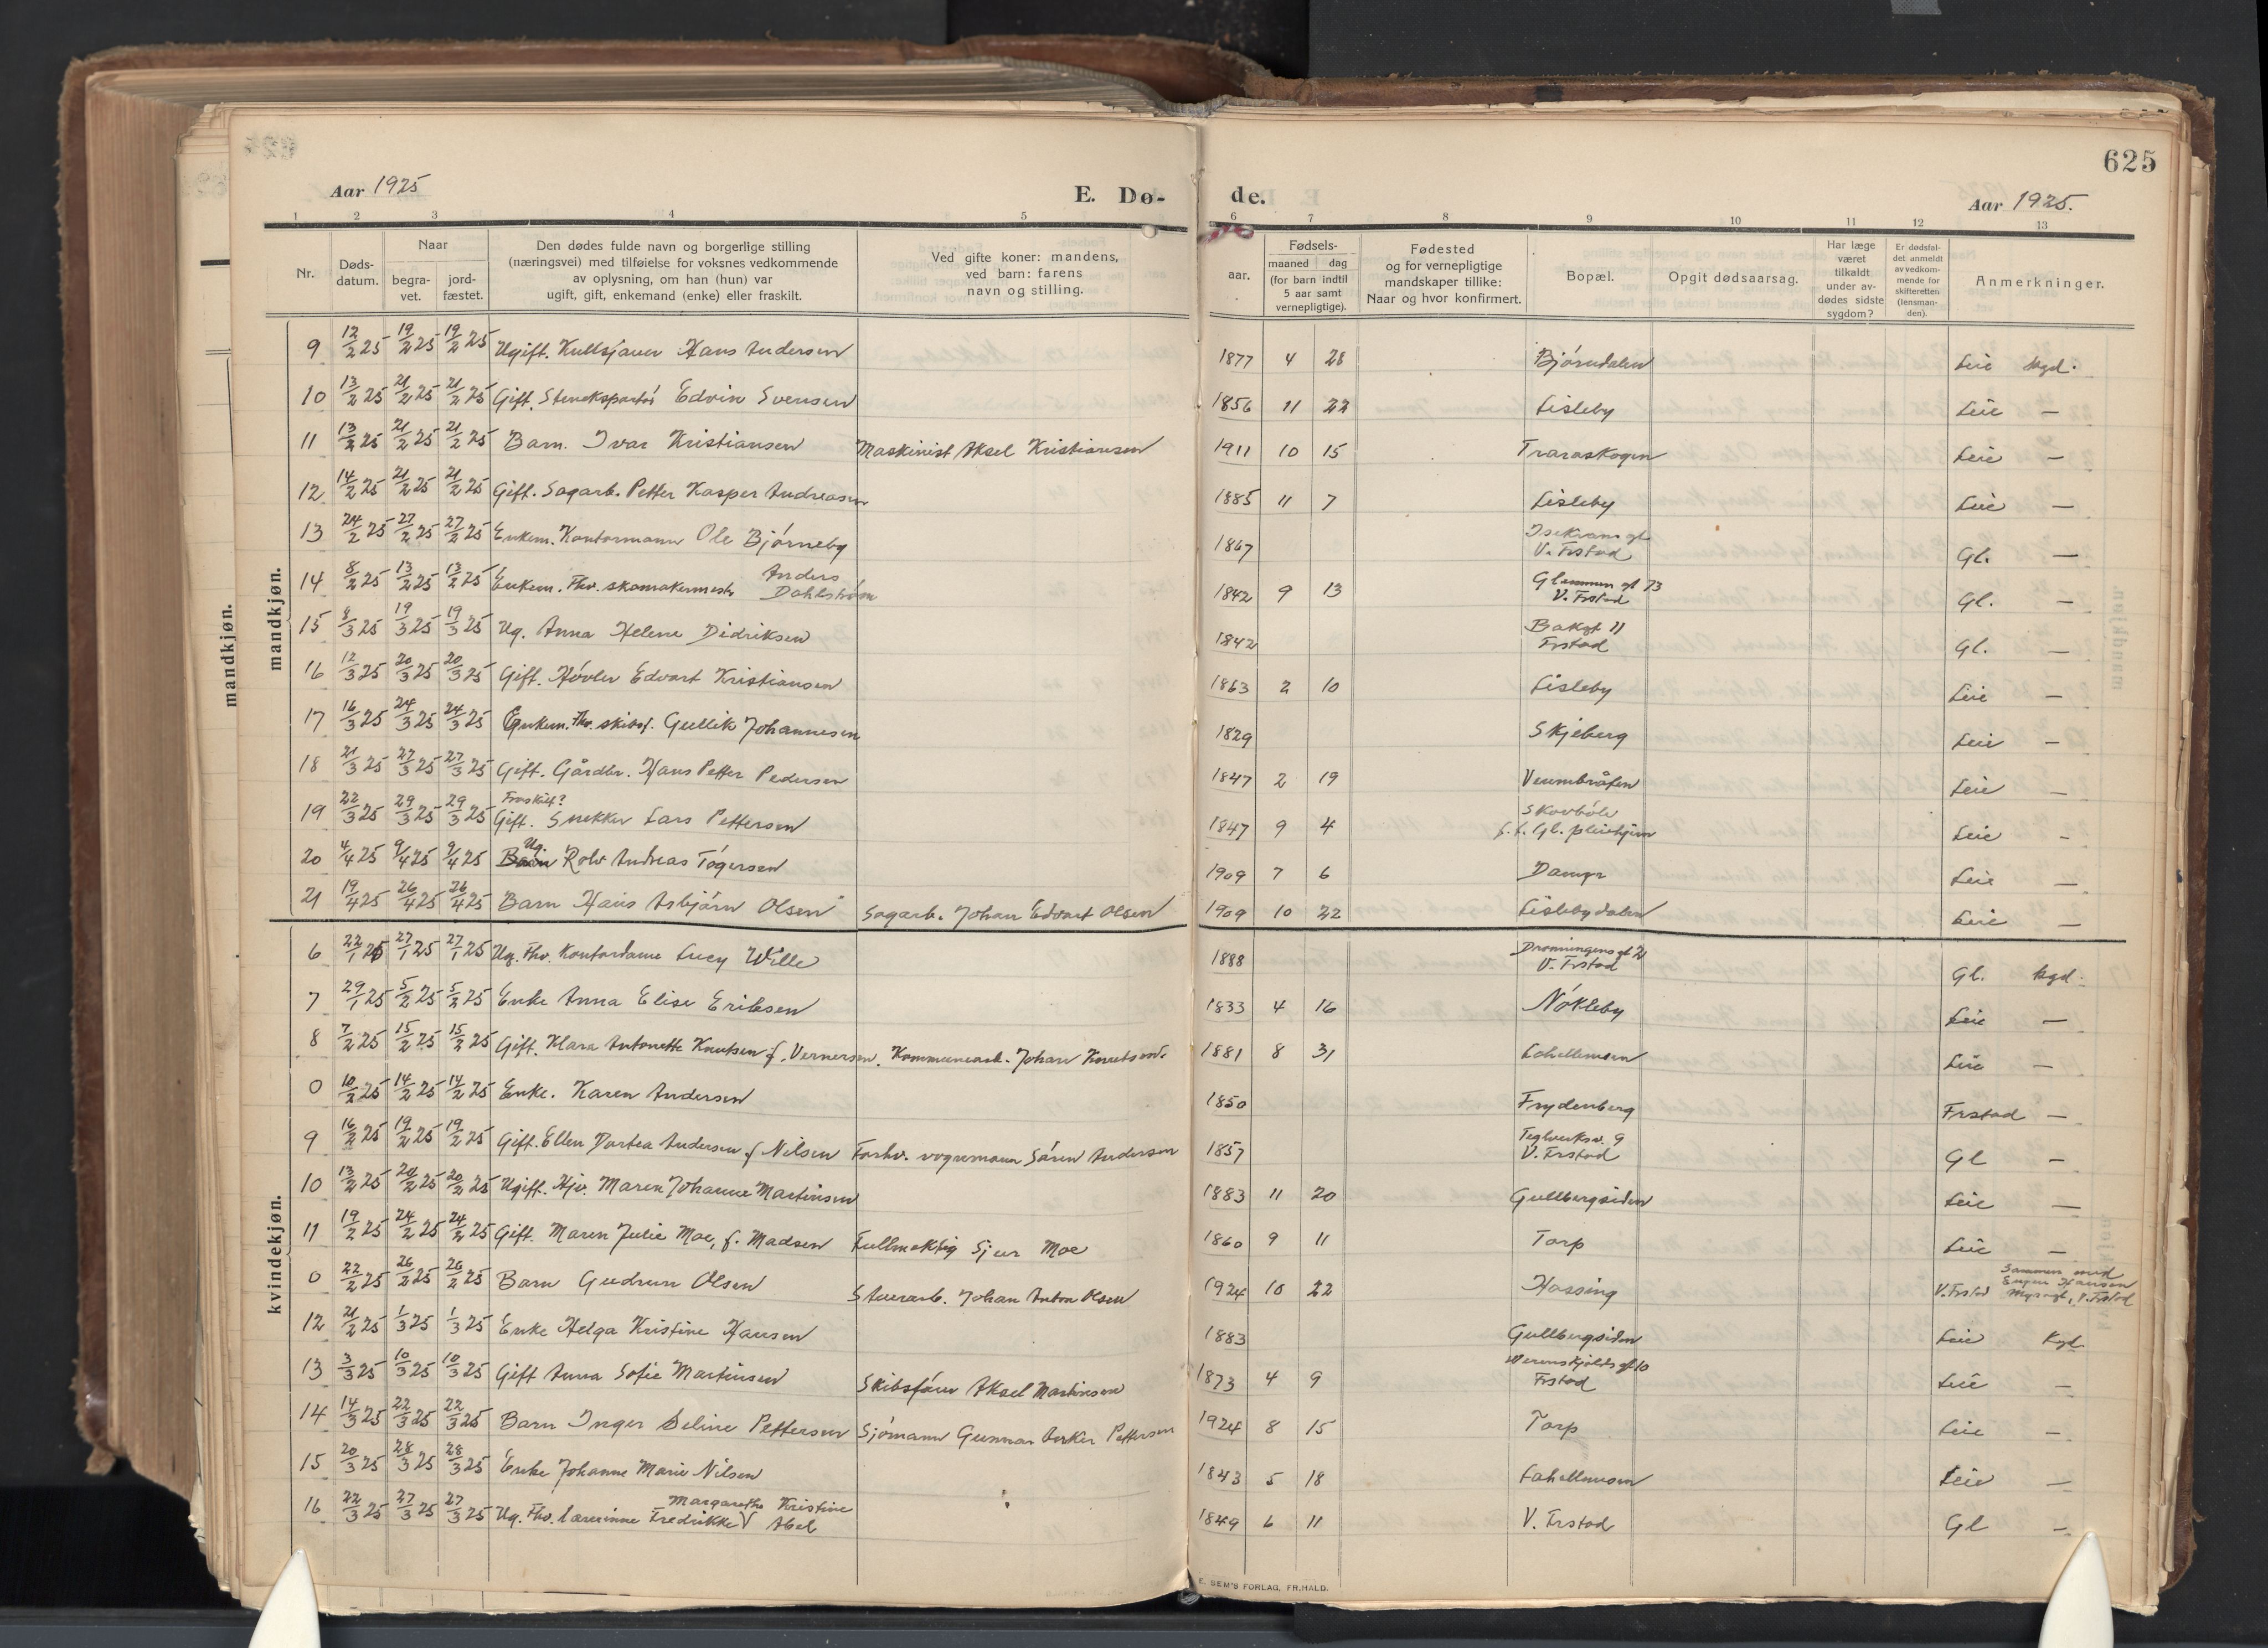 625
Aar 1925
E. Dø-
de.
Aar 1925.
1 2 3 4 5 6 7 8 9 10 11 12 13
Nr.
Døds-
datum.
Naar
begra-
vet.
jord-
fæstet.
Den dødes fulde navn og borgerlige stilling
(næringsvei) med tilføielse for voksnes vedkommende
av oplysning, om han (hun) var
ugift, gift, enkemand (enke) eller fraskilt.
Ved gifte koner: mandens,
ved barn: farens
navn og stilling.
aar.
Fødsels-
maaned dag
(for barn indtil
5 aar samt
vernepligtige).
Fødested
og for vernepligtige
mandskaper tillike:
Naar og hvor konfirmert.
Bopæl.
Opgit dødsaarsag.
Har læge
været
tilkaldt
under av-
dødes sidste
sygdom?
Er dødsfal-
det anmeldt
av vedkom-
mende for
skifteretten
(lensman-
den).
Anmerkninger.
mandkjøn.
mandkjøn.
9 12/2 25 19/2 25 19/2 25 Ugift. Kullsjauer Hans Andersen 1877 4 28 Bjørndalen Leie kgd.
10 13/2 25 21/2 25 21/2 25 Gift. Edvin Svensen 1856 11 22 Lisleby Leie —
11 13/2 25 21/2 25 21/2 25 Barn. Ivar Kristiansen Maskinist Aksel Kristiansen 1911 10 15 Traraskogen Leie —
12 14/2 25 21/2 25 21/2 25 Gift. Sagarb. Petter Kasper Andreasen 1885 11 7 Lisleby Leie —
13 24/2 25 27/2 25 27/2 25 Enkem. Kontormann Ole Bjørneby 1867 V. Frstad Gl. —
14 8/2 25 13/2 25 13/2 25 Enkem. Fhv. skomakermestr Anders
Dahlstrøm 1842 9 13 Glemmen gt 73
V. Frstad Gl. —
15 8/3 25 19/3 25 19/3 25 Ug. Anna Helene Didriksen 1842 Bakgt 11
Frstad Gl. —
16 12/3 25 20/3 25 20/3 25 Gift. Høvler Edvart Kristiansen 1863 2 10 Lisleby Leie —
17 16/3 25 24/3 25 24/3 25 Enkem. Fhv. skibsf. Gullik Johannesen 1829 Skjeberg Leie —
18 21/3 25 27/3 25 27/3 25 Gift. Gårdbr. Hans Petter Pedersen 1847 2 19 Veumbråten Leie —
19 22/3 25 29/3 25 29/3 25 Fraskilt?
Gift. Snekker Lars Pettersen 1847 9 4 Skovbøle
f. t. Gl. pleiehjem Leie -
20 4/4 25 9/4 25 9/4 25 Ug.
Barn Rolv Andreas Tøgersen 1909 7 6 Damyr Leie —
21 19/4 25 26/4 25 26/4 25 Barn Hans Asbjørn Olsen Sagarb. Johan Edvart Olsen 1909 10 22 Lislebydalen Leie —
kvindekjøn.
6 22/1 25 27/1 25 27/1 25 Ug. Fhv. Kontordame Lucy Wille 1888 Dronningens gt 21
V. Frstad Gl. kgd.
7 29/1 25 5/2 25 5/2 25 Enke Anna Elise Eriksen 1833 4 16 Nøkleby Leie —
8 7/2 25 15/2 25 15/2 25 Gift. Klara Antonette Knutsen f. Vernersen. Kommunearb. Johan Knutsen. 1881 8 31 Lahellemoen Leie —
0 10/2 25 14/2 25 14/2 25 Enke. Karen Andersen 1850 Frydenberg Frstad —
9 16/2 25 19/2 25 19/2 25 Gift. Ellen Dortea Andersen f Nilsen Forhv. vognmann Søren Andersen 1857 Teglverksv. 9
V. Frstad Gl —
10 13/2 25 20/2 25 20/2 25 Ugift. Hjv. Maren Johanne Martinsen 1883 11 20 Gullbergsiden Leie —
11 19/2 25 24/2 25 24/2 25 Gift. Maren Julie Moe, f. Madsen Fullmektig Sjur Moe 1860 9 11 Torp Leie —
0 22/2 25 26/2 25 26/2 25 Barn Gudrun Olsen Stuerarb. Johan Anton Olsen 1924 10 22 Hassing V. Frstad Sammen med
Eugen Hansen
Myragt, V. Frstad
12 21/2 25 1/3 25 1/3 25 Enke Helga Kristine Hansen 1883 Gullbergsiden Leie Kgd.
13 3/3 25 10/3 25 10/3 25 Gift Anna Sofie Martinsen Skibsfører Aksel Martinsen 1873 4 9 Werenskjolds gt 10
Frstad Leie —
14 14/3 25 22/3 25 22/3 25 Barn Inger Seline Pettersen Sjømann Gunnar Anker Pettersen 1924 8 15 Torp Leie —
15 20/3 25 28/3 25 28/3 25 Enke Johanne Marie Nilsen 1843 5 18 Lahellmoen Leie —
16 22/3 25 27/3 25 27/3 25 Ug. Fhv. lærerinne Fredrikke Margarethe Kristine
Abel 1849 6 11 V. Frstad Gl —
E. SEM'S FORLAG, FR.HALD.